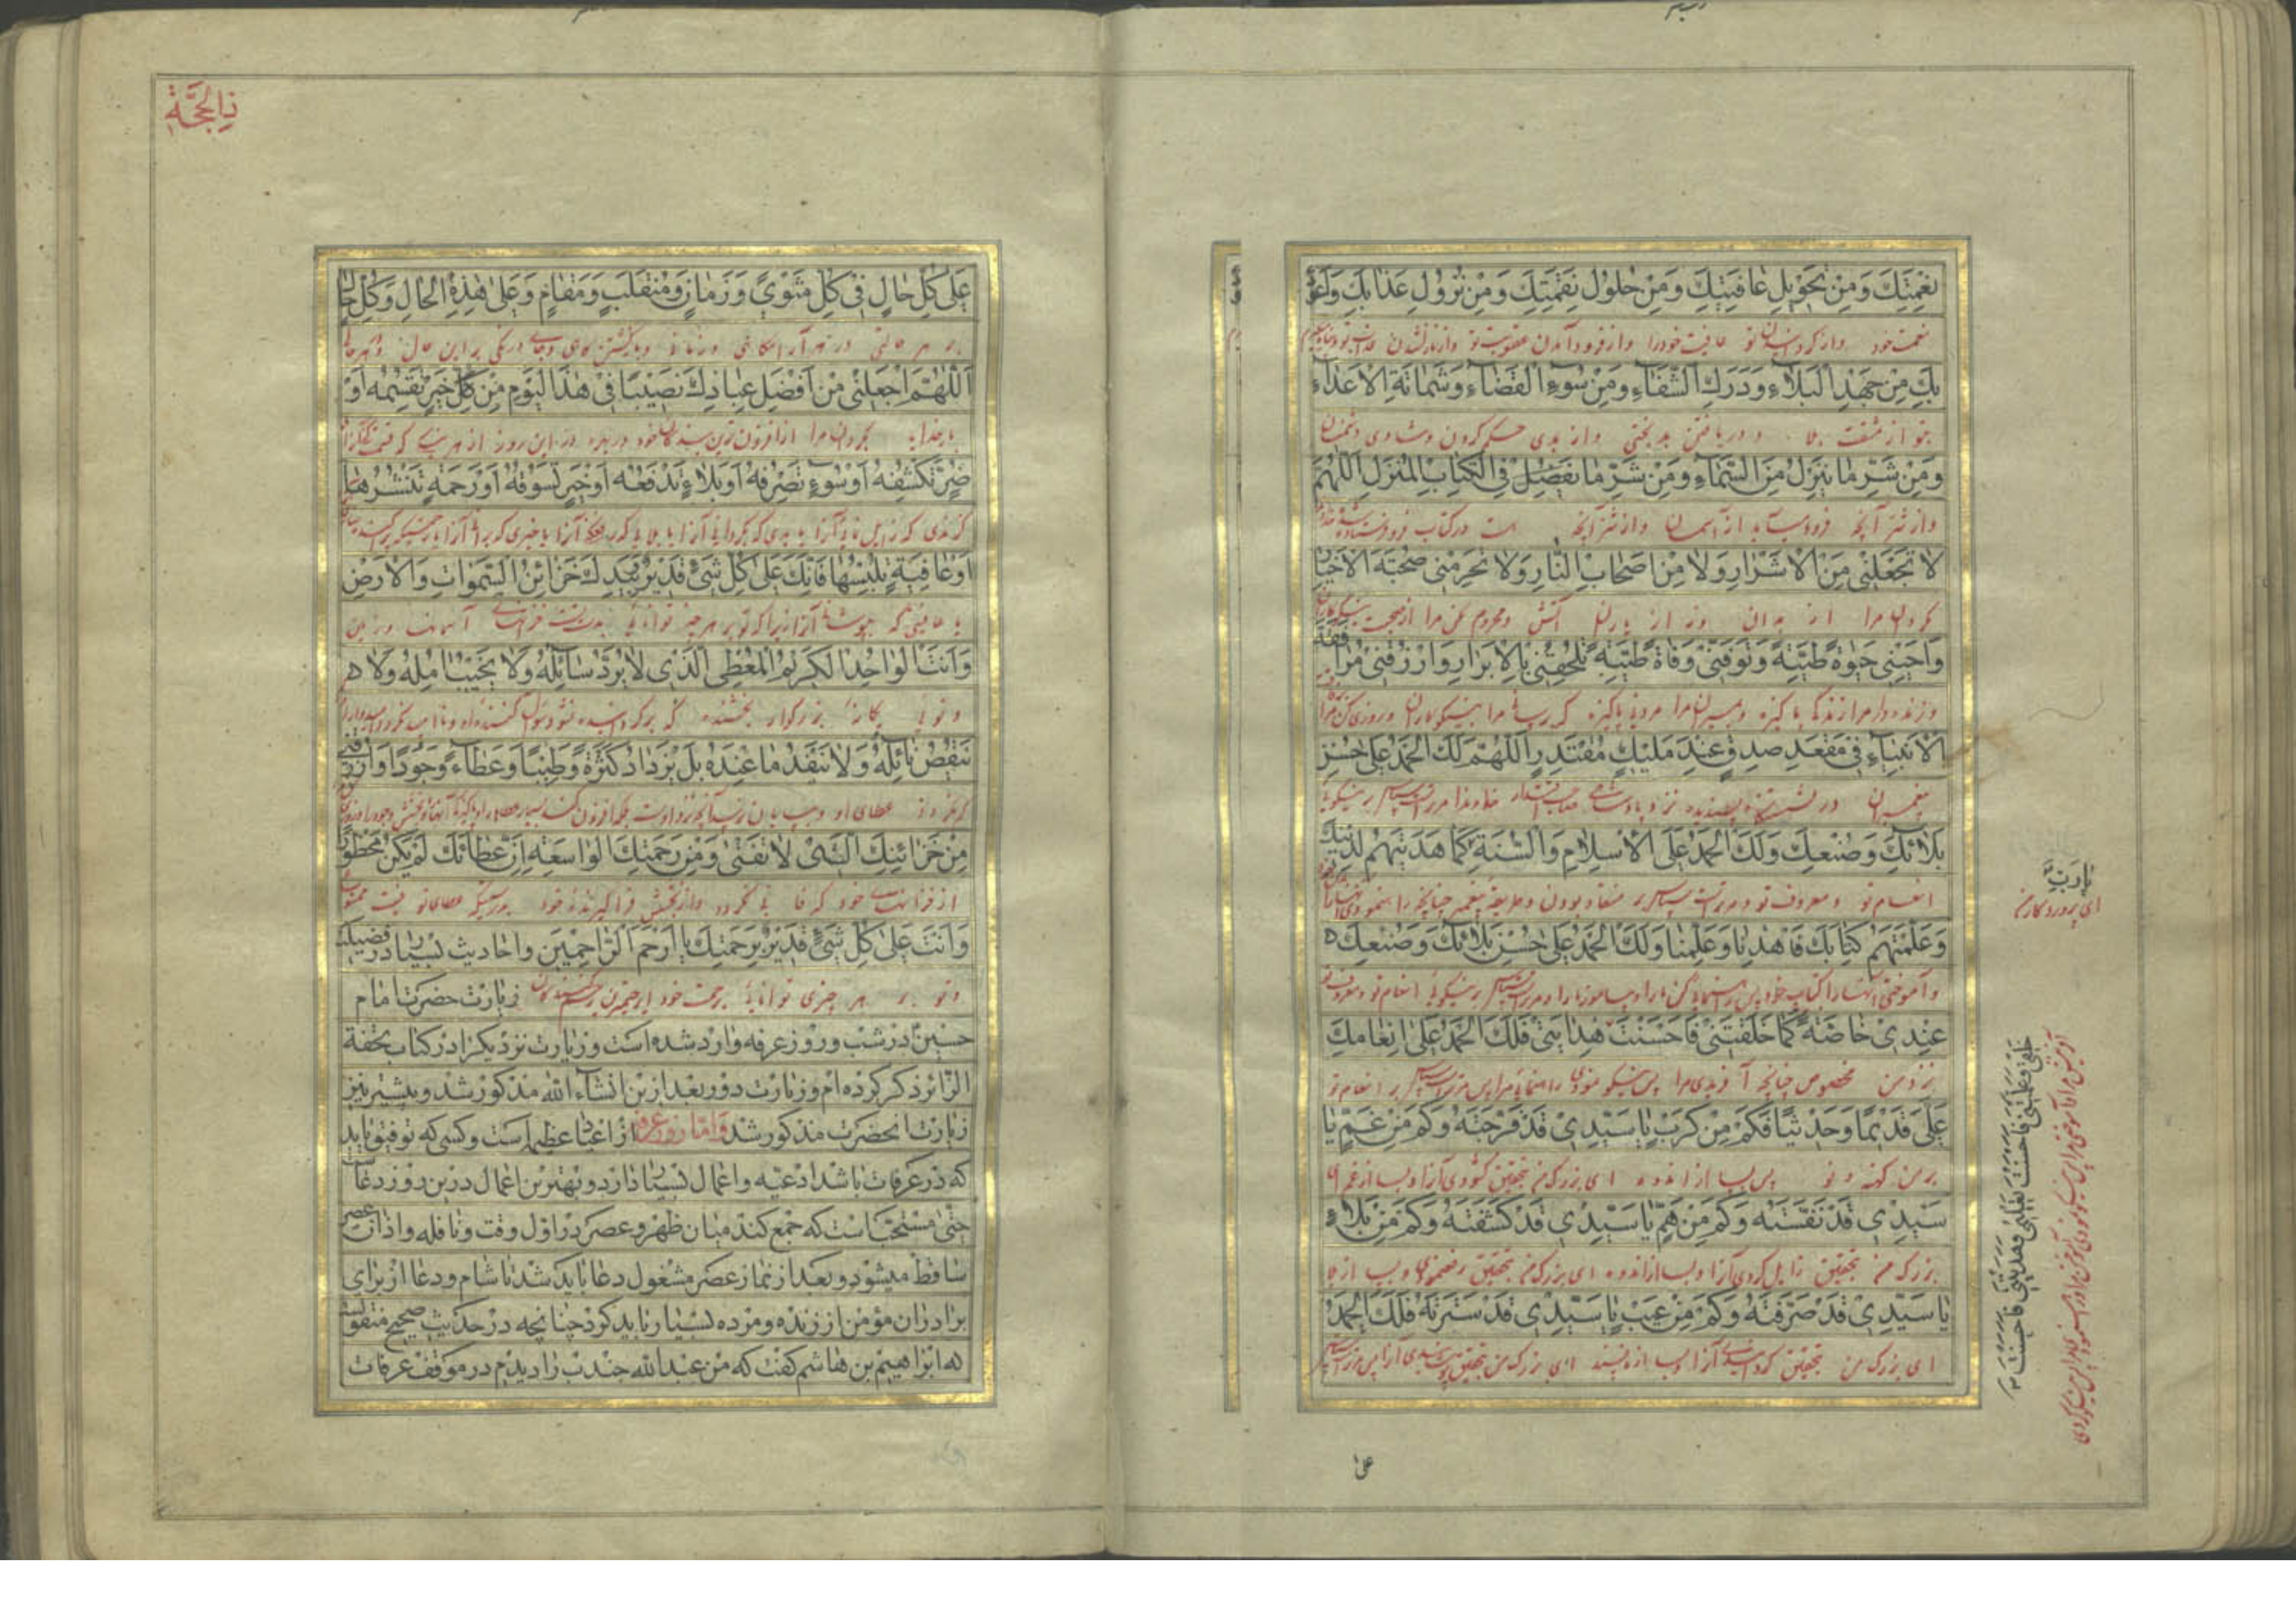 نِعْمَتِكَ وَمِنْ تَحْوِيلِ عَافِيَتِكَ وَمِنْ حُلُولِ نِقْمَتِكَ وَمِنْ نُزُولِ عَذَابِكَ وَاَعُوذُ
نعمت خود و از کردانیدن تو عافیت خود را و از فرود آمدن عقوبت تو و از نازل شدن عذاب تو
بِكَ مِنْ جَهْدِ الْبَلَاءِ وَدَرَكِ الشَّقَاءِ وَمِنْ سُوءِ الْقَضَاءِ وَشَمَاتَةِ الْاَعْدَاءِ
بتو از مشقت بلا و دریافتن بدبختی و از بدی حکم کردن و شادی دشمنان
وَمِنْ شَرِّ مَا يَنْزِلُ مِنَ السَّمَاءِ وَمِنْ شَرِّ مَا فِي الْكِتَابِ الْمُنْزَلِ اَللّٰهُمَّ
و از شر آنچه فرود میآید از آسمان و از شر آنچه است در کتاب فرو فرستاده شده
لَا تَجْعَلْنِي مِنَ الْاَشْرَارِ وَلَا مِنْ اَصْحَابِ النَّارِ وَلَا تَحْرِمْنِي صُحْبَةَ الْاَخْيَارِ
مکردان مرا از بدان و نه از یاران آتش و محروم مکن مرا از صحبت نیکوکاران
وَاَحْيِنِي حَيٰوةً طَيِّبَةً وَتَوَفَّنِي وَفَاةً طَيِّبَةً تُلْحِقُنِي بِالْاَبْرَارِ وَارْزُقْنِي مُرَافَقَةَ
و زنده دار مرا زندکی پاکیزه و بمیران مرا مردنی پاکیزه که رسانی مرا بنیکوکاران و روزی کن مرا
الْاَنْبِيَاءِ فِي مَقْعَدِ صِدْقٍ عِنْدَ مَلِيكٍ مُقْتَدِرٍ اَللّٰهُمَّ لَكَ الْحَمْدُ عَلٰى حُسْنِ
پیغمبران در نشستنگاه پسندیده نزد پادشاه صاحب اقتدار خداوندا مر تراست سپاس بر نیکویی
بَلَائِكَ وَصُنْعِكَ وَلَكَ الْحَمْدُ عَلَى الْاِسْلَامِ وَالسُّنَّةِ كَمَا هَدَيْتَهُمْ لِدِينِكَ
انعام تو و معروف تو و مر تراست سپاس بر منقاد بودن و طریقه پیغمبر چنانچه راه نمودی
وَعَلَّمْتَهُمْ كِتَابَكَ فَاهْدِنَا وَعَلِّمْنَا وَلَكَ الْحَمْدُ عَلٰى حُسْنِ بَلَائِكَ وَصُنْعِكَ
و آموختی ایشانرا کتاب خود پس راهنمائی کن ما را و بیاموز ما را و مر تراست سپاس بر نیکوئی انعام تو و معروف تو
عِنْدِي خَاصَّةً كَمَا خَلَقْتَنِي فَاَحْسَنْتَ هِدَايَتِي فَلَكَ الْحَمْدُ عَلٰى اِنْعَامِكَ
نزد من مخصوص چنانچه آفریدی مرا پس نیکو نمودی راهنمائی مرا پس مر تراست سپاس بر انعام تو
عَلَيَّ قَدِيمًا وَحَدِيثًا فَكَمْ مِنْ كَرْبٍ يَا سَيِّدِي قَدْ فَرَّجْتَهُ وَكَمْ مِنْ غَمٍّ يَا
بر من کهنه و نو پس بسا از اندوه ای بزرک من بتحقیق کشودی آنرا و بسا از غم ای
سَيِّدِي قَدْ نَفَّسْتَهُ وَكَمْ مِنْ هَمٍّ يَا سَيِّدِي قَدْ كَشَفْتَهُ وَكَمْ مِنْ بَلَاءٍ
بزرک من بتحقیق زایل کردی آنرا و بسا از اندوه ای بزرک من بتحقیق و بسا از بلا
يَا سَيِّدِي قَدْ صَرَفْتَهُ وَكَمْ مِنْ عَيْبٍ يَا سَيِّدِي قَدْ سَتَرْتَهُ فَلَكَ الْحَمْدُ
ای بزرک من بتحقیق آنرا و بسا از ناپسند ای بزرک من بتحقیق پوشیدی آنرا پس مر تراست سپاس
يَا رَبِّ
ای پروردکار من
خَلْقِي وَعَلَّمْتَنِي فَاَحْسَنْتَ تَعْلِيمِي وَهَدَيْتَنِي فَاَحْسَنْتَ
على
ذِي الحِجَّة
عَلٰى كُلِّ حَالٍ فِي كُلِّ مَثْوًى وَزَمَانٍ وَمُنْقَلَبٍ وَمَقَامٍ وَعَلٰى هٰذِهِ الْحَالِ وَكُلِّ حَالٍ
بر هر حالتی در هر آرامگاهی و زمانی و بازگشتن گاهی و جای درنگی بر این حال و هر حالی
اَللّٰهُمَّ اجْعَلْنِي مِنْ اَفْضَلِ عِبَادِكَ نَصِيبًا فِي هٰذَا الْيَوْمِ مِنْ كُلِّ خَيْرٍ تَقْسِمُهُ اَوْ
بارخدایا بکردان مرا از افزون ترین بندکان خود در بهره در این روز از هر نیکی که قسمت کنی آنرا
ضُرٍّ تَكْشِفُهُ اَوْ سُوءٍ تَصْرِفُهُ اَوْ بَلَاءٍ تَدْفَعُهُ اَوْ خَيْرٍ تَسُوقُهُ اَوْ رَحْمَةٍ تَنْشُرُهَا
کزندی که زایل نمائی آنرا یا بدی که بکردانی آنرا یا بلائی که دفع کنی آنرا یا خیری که برانی آنرا یا رحمتی که
اَوْ عَافِيَةٍ تُلْبِسُهَا فَاِنَّكَ عَلٰى كُلِّ شَيْءٍ قَدِيرٌ بِيَدِكَ خَزَائِنُ السَّمٰوَاتِ وَالْاَرْضِ
یا عافیتی که بپوشانی آنرا زیرا که تو بر هر چیز توانائی بدست تست خزانهای آسمانها و زمین
وَاَنْتَ الْوَاحِدُ الْكَرِيمُ الْمُعْطِي الَّذِي لَا يُرَدُّ سَائِلُهُ وَلَا يُخَيَّبُ اٰمِلُهُ وَلَا
و توئی یکانه بزرکوار بخشنده که
يَنْقُصُ نَائِلُهُ وَلَا يَنْفَدُ مَا عِنْدَهُ بَلْ يَزْدَادُ كَثْرَةً وَطِيبًا وَعَطَاءً وَجُودًا وَارْزُقْنِي
مِنْ خَزَائِنِكَ الَّتِي لَا تَفْنٰى وَمِنْ رَحْمَتِكَ الْوَاسِعَةِ اِنَّ عَطَائَكَ لَمْ يَكُنْ مَحْظُورًا
از خزانهای خود که فانی نکردد و از بخشش فراکیرنده خود بدرستیکه عطای تو نیست ممنوع
وَاَنْتَ عَلٰى كُلِّ شَيْءٍ قَدِيرٌ بِرَحْمَتِكَ يَا اَرْحَمَ الرَّاحِمِينَ واحادیث بسیار در فضیلت
و تو بر هر چیزی توانائی برحمت خود ای رحیمترین رحم کنندکان زیارت حضرت امام
حسین در شب و روز عرفه وارد شده است و زیارت نزدیکرا در کتاب تحفة
الزائر ذکر کرده ام و زیارت دور بعد ازین انشاء الله مذکور شد و بیشتر نیز
زیارت انحضرت مذکور شد و امّا روز عرفه از اعیاد عظیم است و کسی که توفیق یابد
که در عرفات باشد ادعیه و اعمال بسیار دارد و بهترین اعمال درین روز دعاست
حتی مستحب است که جمع کند میان ظهر و عصر در اول وقت و نافله و اذان عصر
ساقط میشود و بعد از نماز عصر مشغول دعا باید شد تا شام و دعا از برای
برادران مؤمن از زنده و مرده بسیار باید کرد چنانچه در حدیث صحیح منقولست
که ابراهیم بن هاشم گفت که من عبد الله جندب را دیدم در موقف عرفات